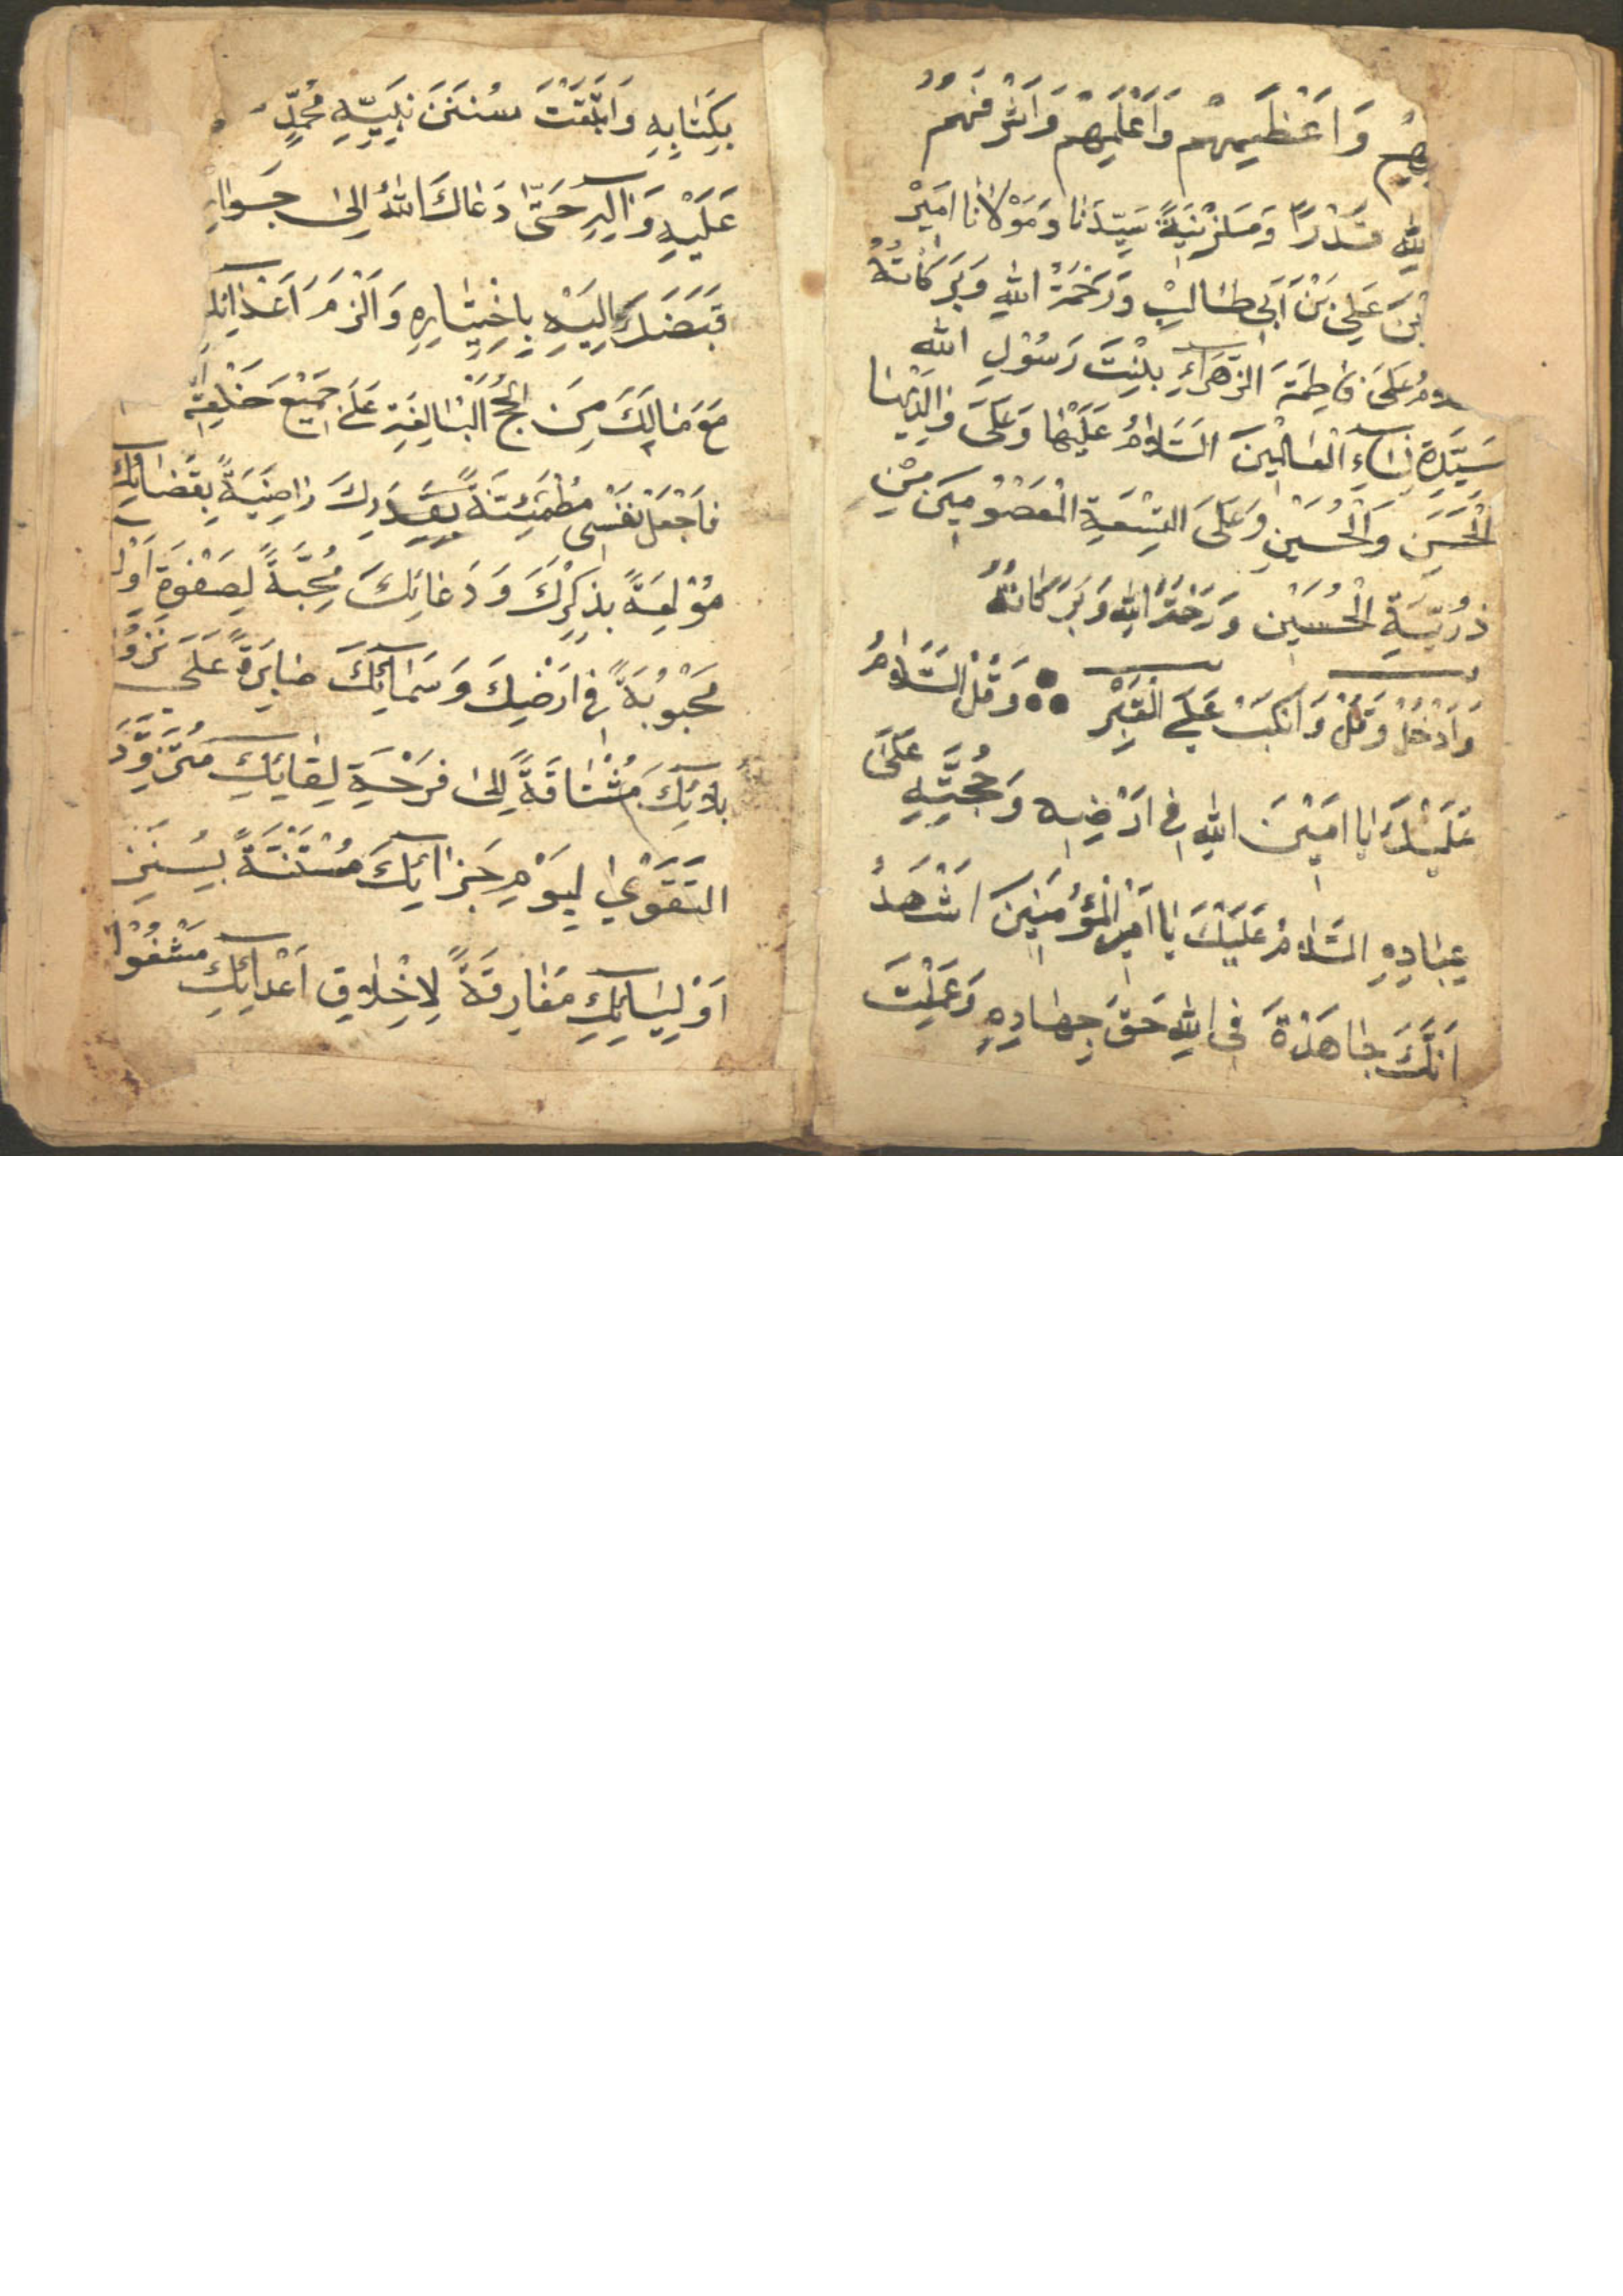 بِهِمْ وَاَعْظَمِهِمْ وَاَعْلَمِهِمْ وَاَشْرَفِهِمْ
للهِ قَدْرًا وَمَنْزِيَةً سَيِّدَنَا وَمَوْلانَا اَمِيْرْ
عَلِي بَنْ اَبَى طَالِبْ وَرَحْمَةُ اللهِ وَبَرَكَاتُهُ
عَلَىَ فَاطِمَةَ الزَهْرَاءِ بِنْتَ رَسُوْلِ اللهِ
سَيِّدَةِ نِسَاءِ الْعَالَمْينَ السَّلامُ عَلَيْهَا وَعَلَىَ وَالِدَيْهَا
الْحَسَنِ وَالْحُسَيْنِ وَعَلَىَ التِسْعَةِ الْمَعْصُوْمِيَنَ مِنْ
ذُرِّيَّةِ الْحُسَيْنِ وَرَحْمَةُ اللهِ وَبَرَكَاتُهُ
وَادْخُلْ وَقُلْ وَانْكَبْ عَلَي الْقَبْرِ وَقُلْ السَّلامُ
عَلَيْكَ يَا اَمِيْنَ اللهِ فِي اَرْضِهِ وَحُجَّتِهِ عَلَىَ
عِبَادِهِ السَّلامُ عَلَيْكَ يَا اَمِيْرَ الْمُؤْمِنِيْنَ اَشْهَدُ
اَنَّكَ جَاهَدْةَ فِي اللهِ حَقَ جِهَادِهِ وَعَمِلْتَ
بِكِتَابِهِ وَاتَّبَعْتَ سُنَنَ نَبِيِّهِ مُحَمَّدٍ
عَلَيْهِ وَالِهِ حَتَّى دَعَاكَ اللهُ اِلىَ جَوَارِ
قَبَضَكَ اِلَيْهِ بِاخِتِيَارِهِ وَالْزَمَ اَعْدَائِكَ
مَعَ مَالَكَ مِنَ الْحُجَجِ الْبَالِغَةِ عَلَىَ جَمِيْعِ خَلْقِهِ
فَاجْعَلْ نَفْسِى مُطْمَئِنَّةً بِقَدَرِكَ رَاضِيَةً بِقَضَائِكَ
مُوْلِعَةً بِذِكْرِكَ وَدَعَائِكَ مُحِبَّةً لِصَفْوَةِ اَوْلـ
مَحْبُوْبَةً فِي اَرْضِكَ وَسَمَائِكَ صَابِرَةً عَلَى نُزُوْلِ
بَلائِكَ مُشْتَاقَةً اِلىَ فَرْحَةِ لِقَائِكَ مُتَزَوِّدَ
التَقْوَىَ لِيَوْمِ جَزَائِكَ مُسْتَنَّةً بِسُنَنِ
اَوْلِيَائِكَ مَفَارِقَةً لِاخْلاقِ اَعْدَائِكَ مَشْغُوْ